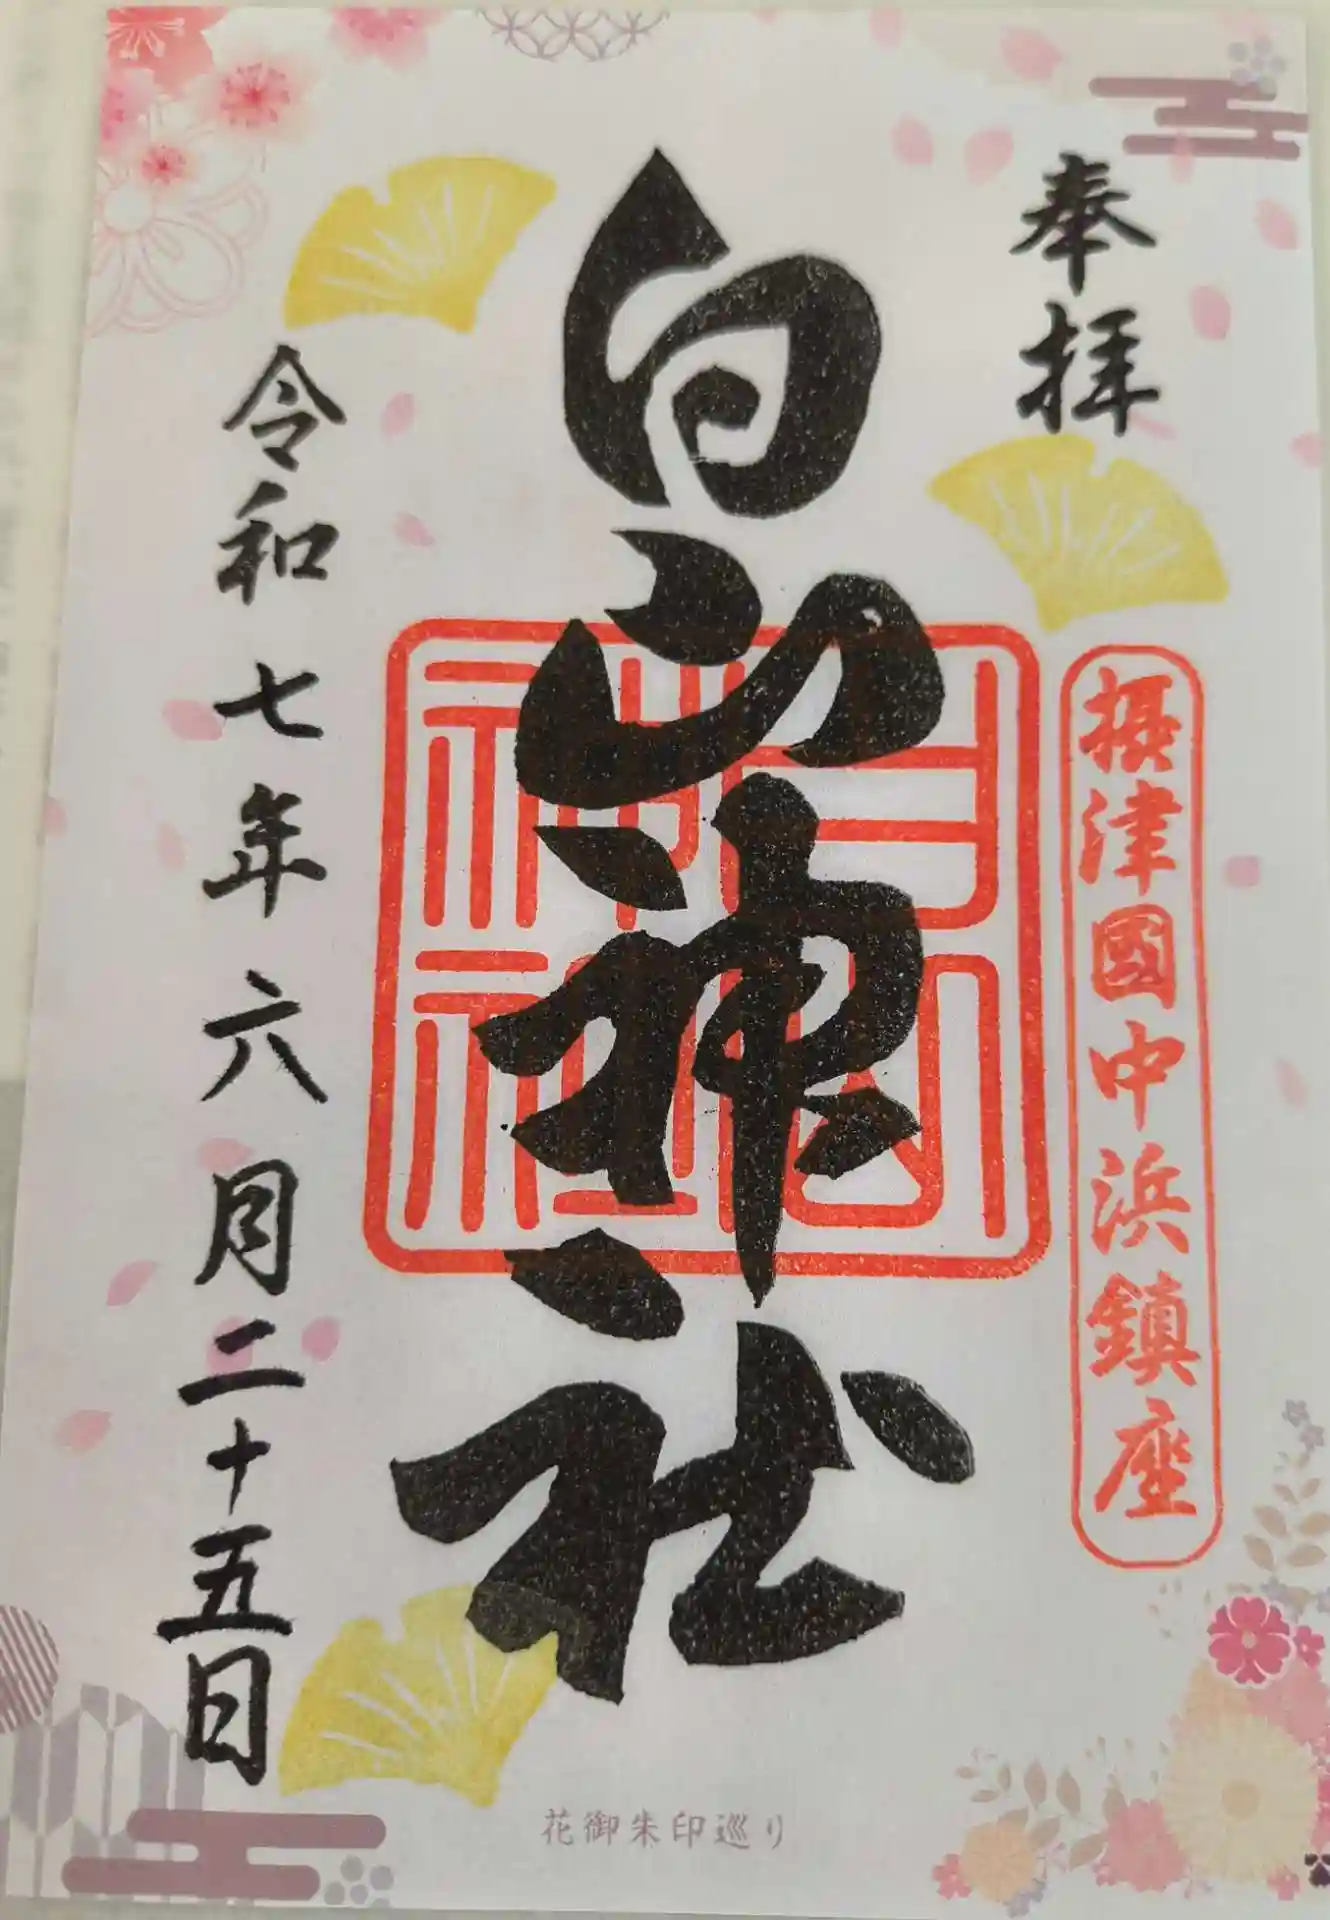 奉拝
摂津國中浜鎮座
白山神社
白山
神社
令和七年六月二十五日
花御朱印巡り